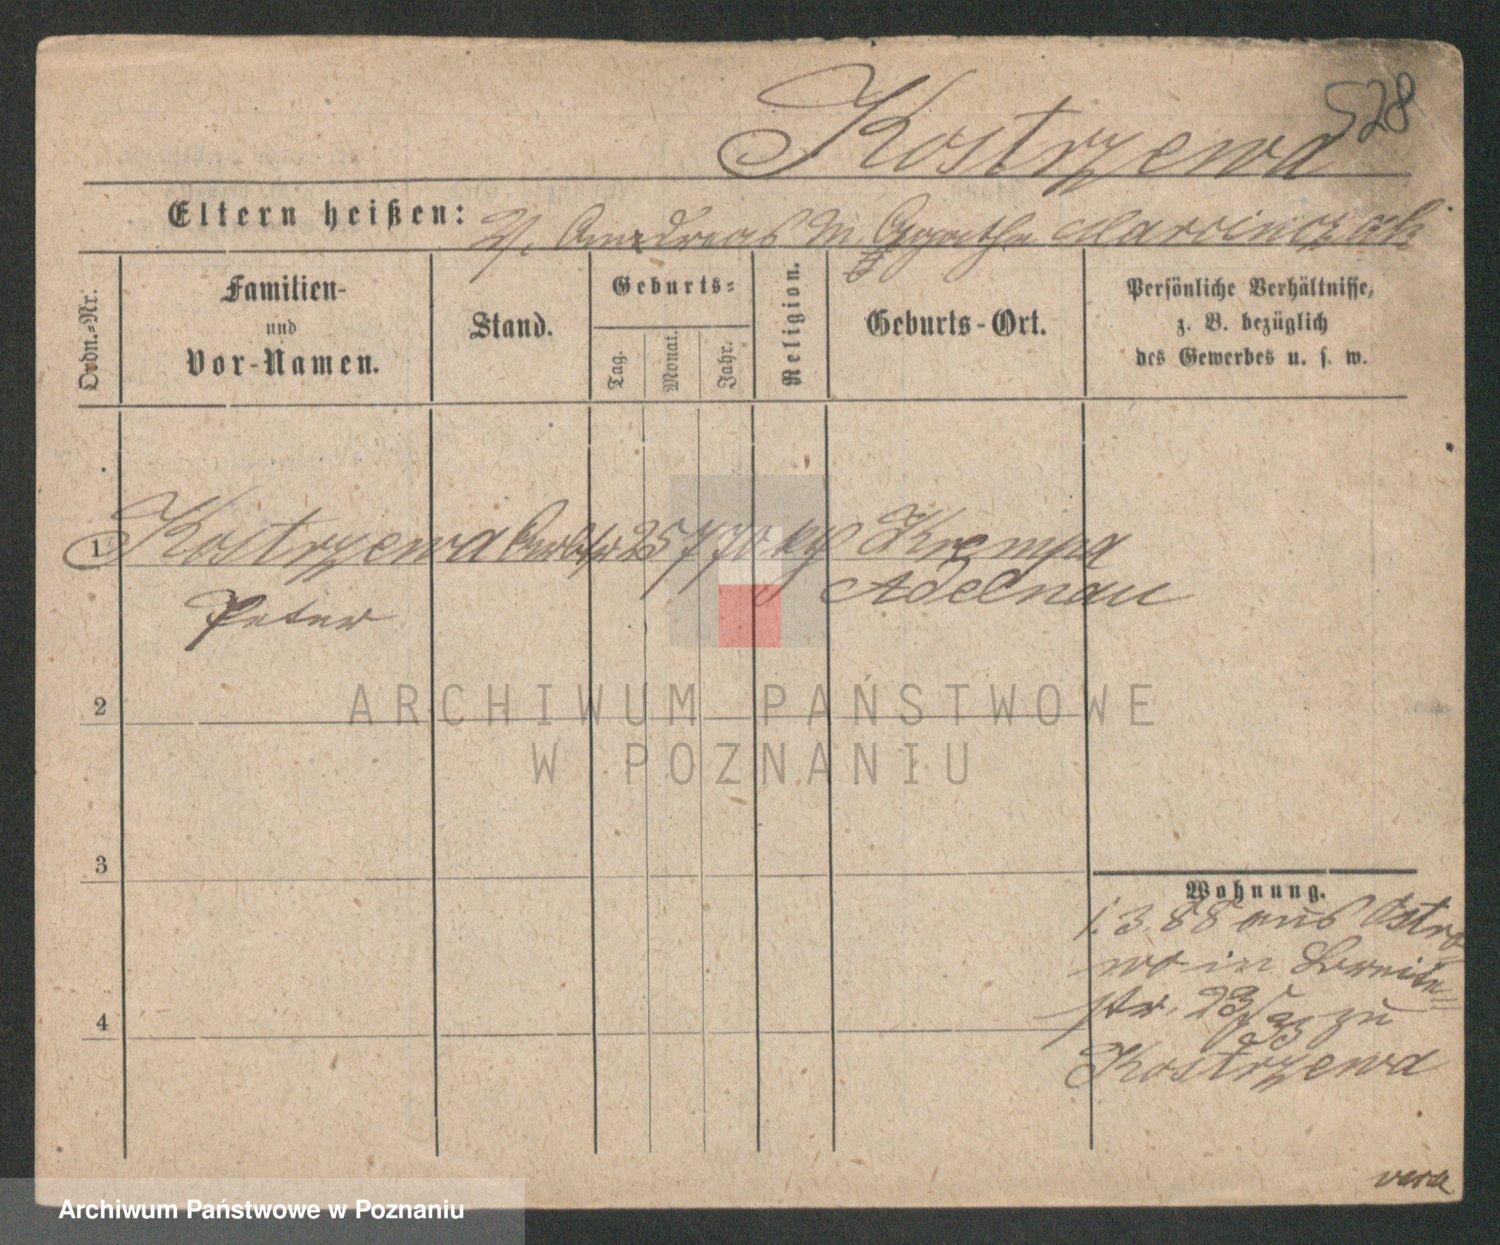 528
Kostrzewa
Eltern heißen: V. Andreas M. Agatha Marcinczak
Ordn.-Nr.
Familien-
und
Vor-Namen.
Stand.
Geburts-
Tag.
Monat.
Jahr.
Religion.
Geburts-Ort.
Persönliche Verhältnisse,
z. B. bezüglich
des Gewerbes u. s. w.
1 Kostrzewa 25 7 70 Krempa
Peter Adelnau
2
3
4
Wohnung.
1. 3. 88 aus Ostro
wo in Breite-
str. zu
Kostrzewa
vera
ARCHIWUM PAŃSTWOWE
W POZNANIU
Archiwum Państwowe w Poznaniu